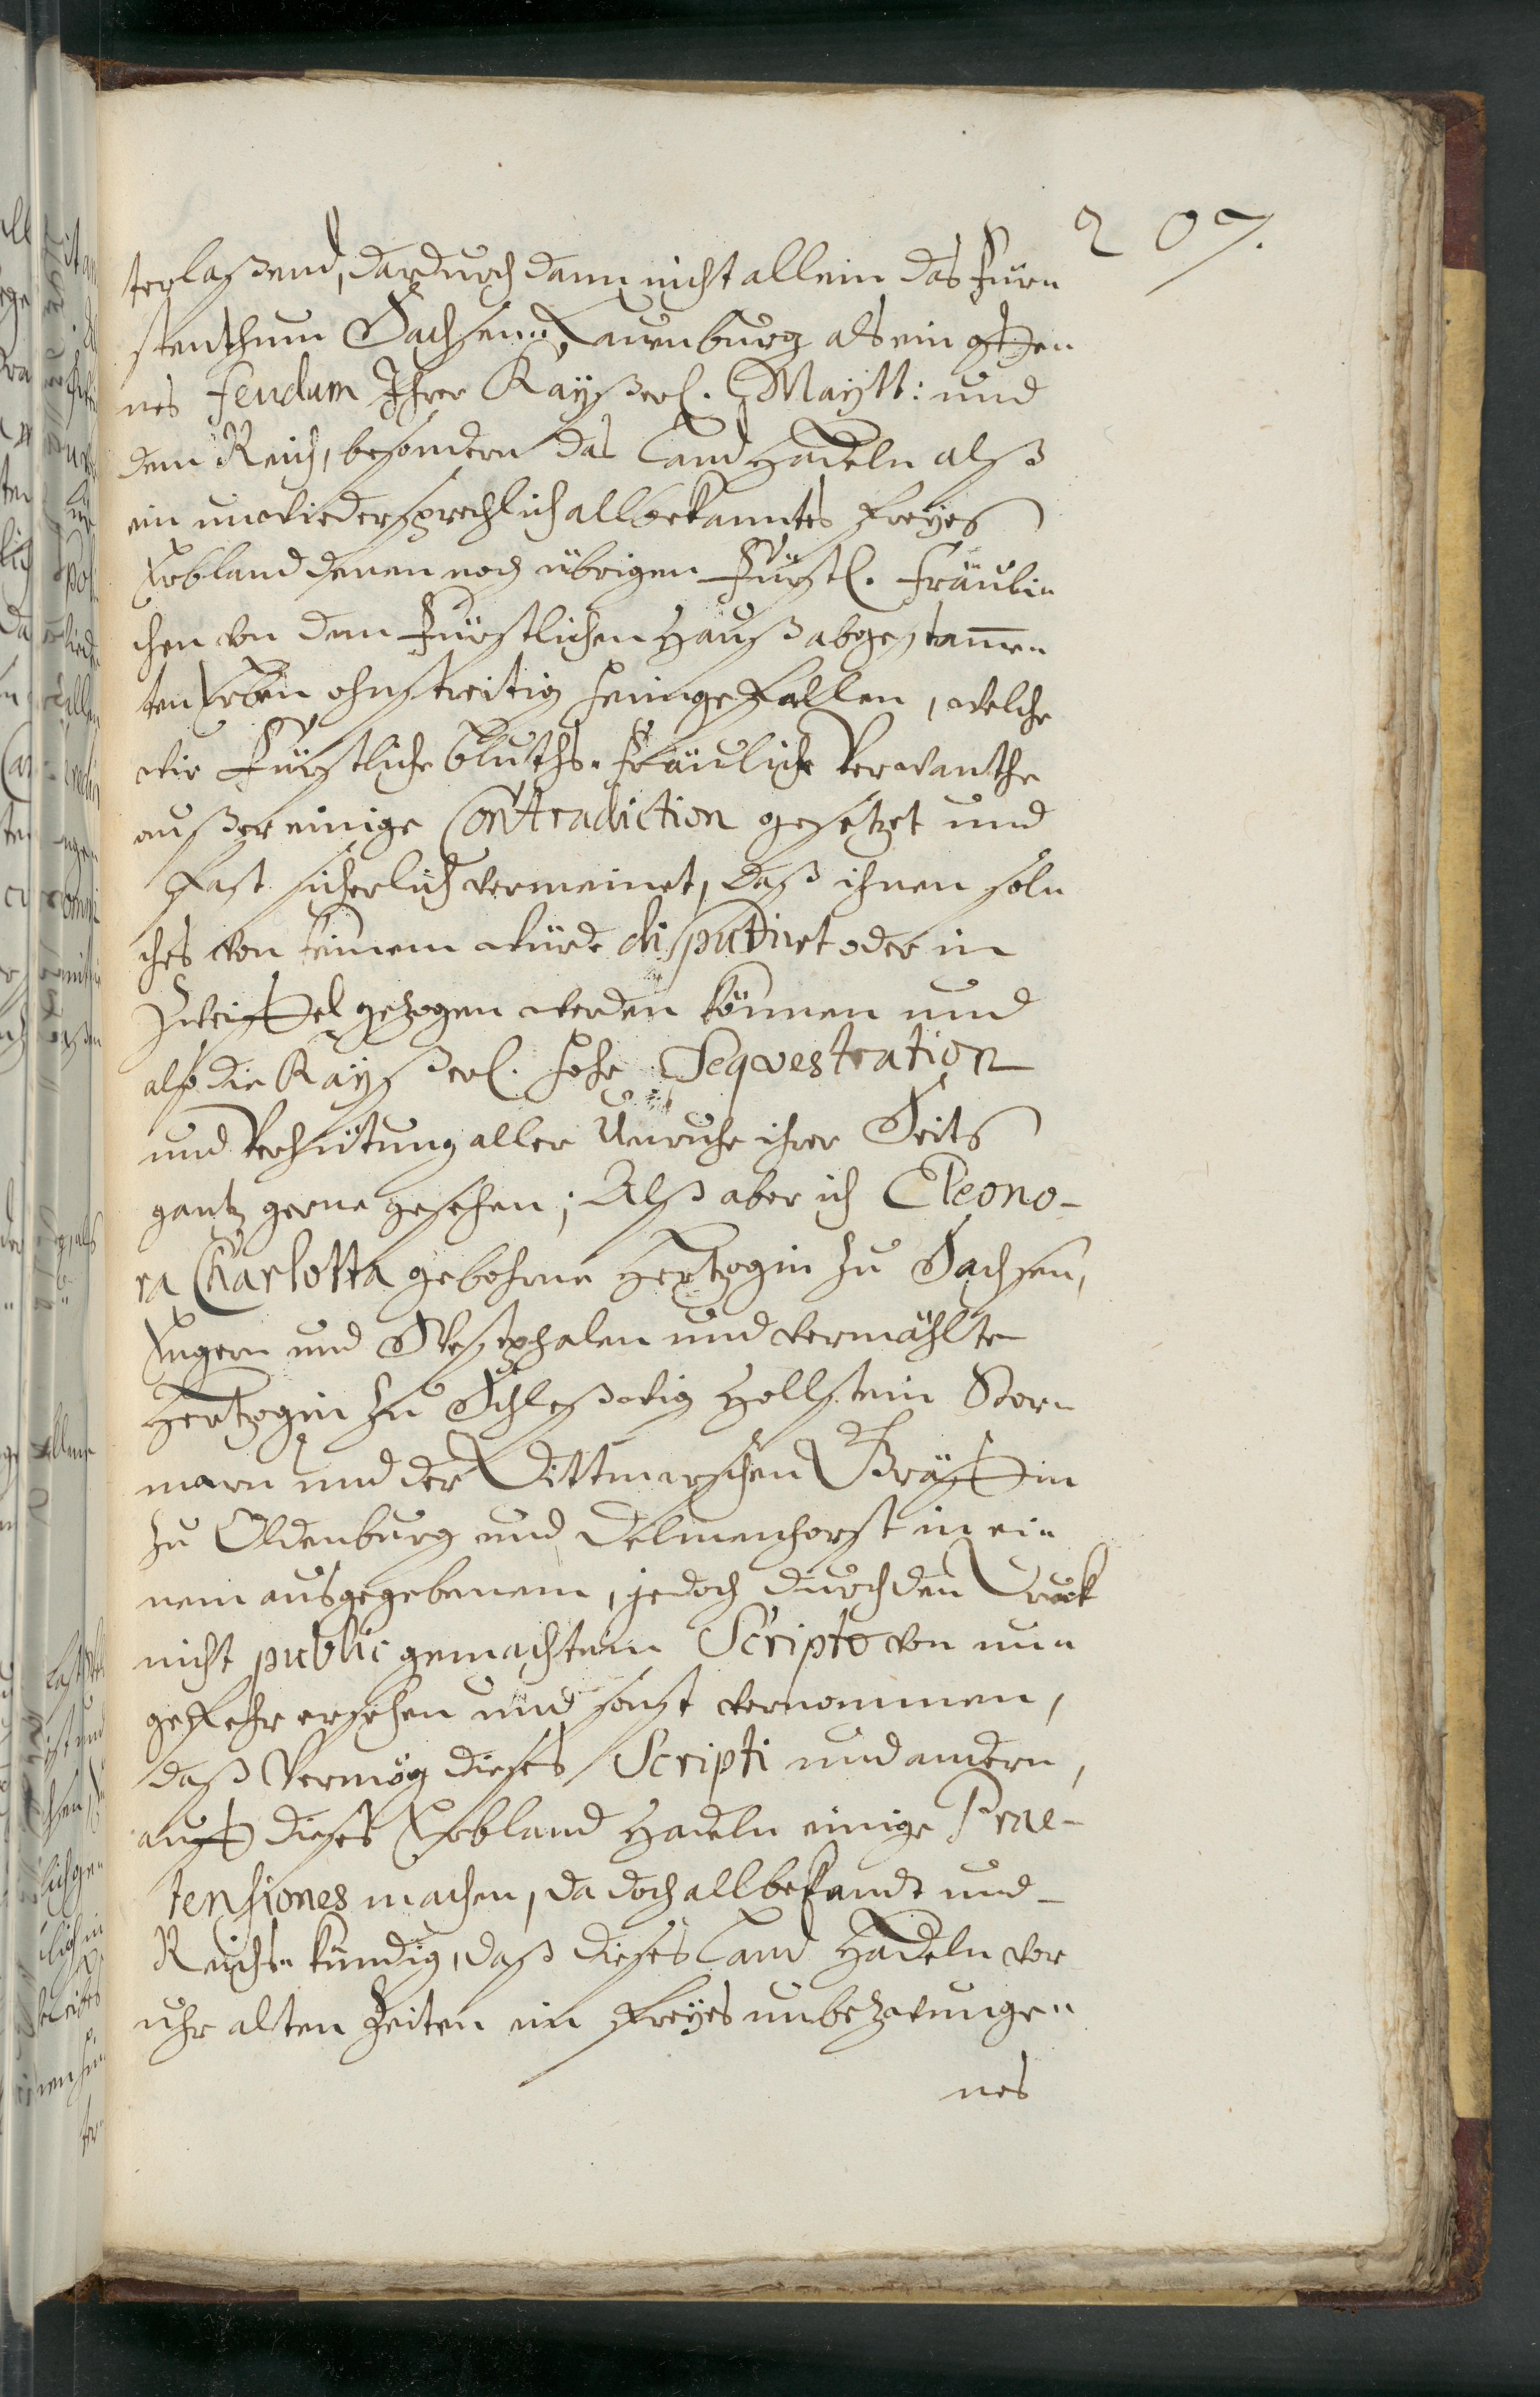 207.
terlaßend, dardurch dann nicht allein das Für-
stenthum Sachsen-Lauenburg als ein offen
nes feudum Ihrer Kayßerl. Maytt: und
dem Reich, besondern das Land Hadeln alß
ein unwiedersprechlich allbekanntes freyes
Erbland denen noch übrigen Fürstl. Fräuli-
chen von dem Fürstlichen Hauß abgestam̅e-
ten Erben ohnstreitig heimgefallen, welche
wir Fürstliche bluths-Fräuliche Verwanthe
außer einige Contradiction gesetzet und
fast sicherlich vermeinet, daß ihnen sol-
ches von keinem würde disputiret oder in
Zweiffel gezogen werden können und
also die Kayßerl. hohe Seqvestration
und Verhütung aller Unruhe ihrer Seits
gantz gerne gesehen; Alß aber ich Eleono-
ra Charlotta gebohrne Hertzogin zu Sachsen,
Engern und Westphalen und vermählte
Hertzogin zu Schleßwig Hollstein Stor-
marn und der Dittmarschen Gräffin
zu Oldenburg und Delmenhorst in ei-
nem ausgegebenem, jedoch durch den Druck
nicht public gemachtem Scripto von un-
gefehr ersehen und sonst vernommen,
daß Vermög dieses Scripti und andern,
auff dieses Erbland Hadeln einige Prae-
tensiones machen, da doch allbekandt und
Reichs-kündig, daß dieses Land Hadeln vor
uhr alten Zeiten ein freyes unbezwunge-
nes